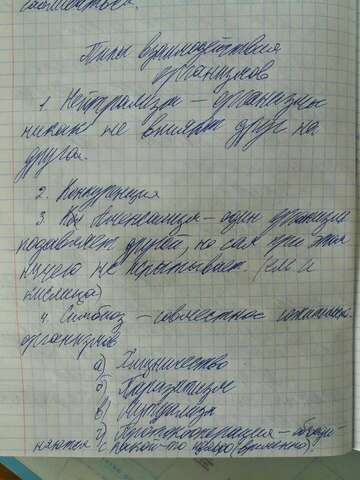 Типы взаимодействия
организмов
1. Нейтрализм – организмы
никак не влияют друг на
друга.
2. Конкуренция
3. Аменсализм – один организм
подавляет другой, но сам при этом
ничего не испытывает. (ель и
кислица)
4. Симбиоз – совместное
организмов
а) Хищничество
б) Паразитизм
в) Мутуализм
г) Протокооперация – объеди-
няются с какой-то целью (временно).